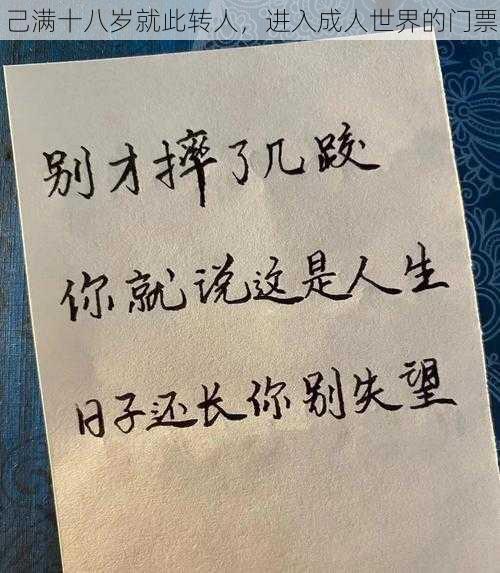 己满十八岁就此转人，进入成人世界的门票
别才摔了几跤
你就说这是人生
日子还长你别失望